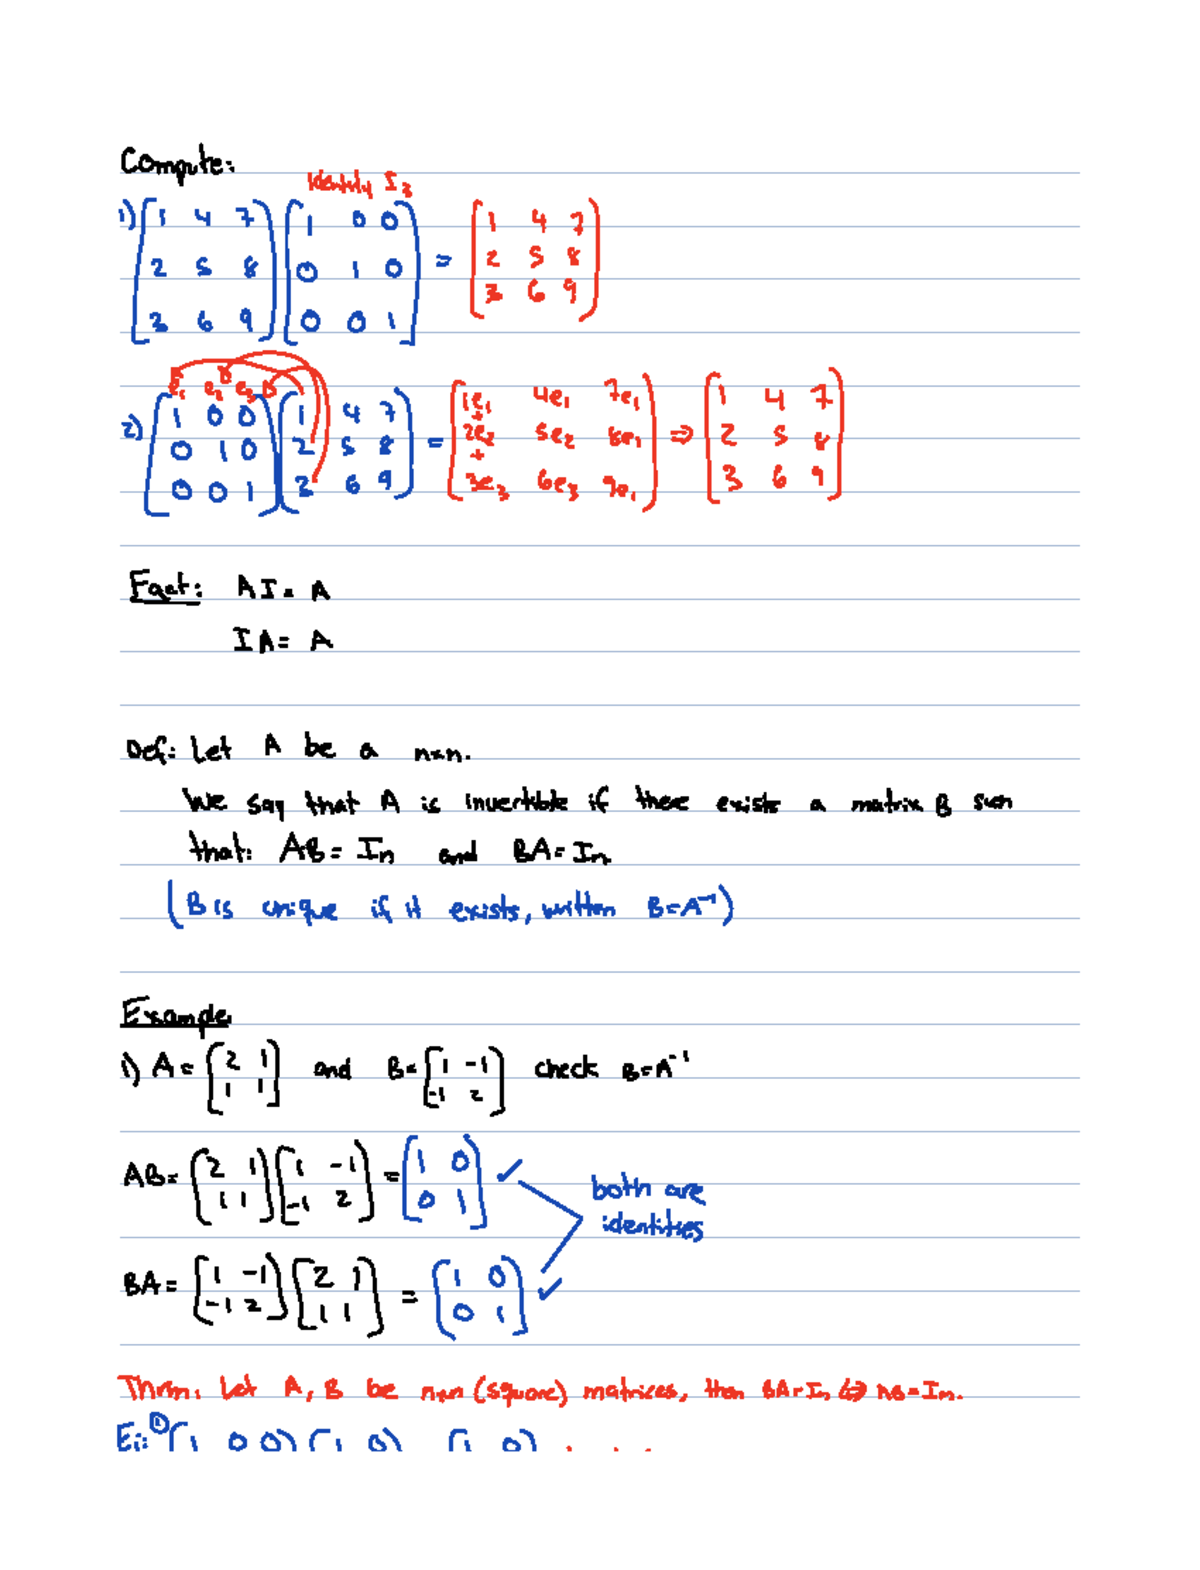 Compute:
Identity I₃
1) [1 4 7; 2 5 8; 3 6 9] [1 0 0; 0 1 0; 0 0 1] = [1 4 7; 2 5 8; 3 6 9]
e₁ e₂ e₃
2) [1 0 0; 0 1 0; 0 0 1] [1 4 7; 2 5 8; 3 6 9] = [1e₁ + 2e₂ + 3e₃ 4e₁ 5e₂ 6e₃ 7e₁ 8e₁ 9e₁] ⇒ [1 4 7; 2 5 8; 3 6 9]
Fact: AI = A
IA = A
Def: Let A be a n×n.
We say that A is invertible if there exists a matrix B such
that: AB = Iₙ and BA = Iₙ
(B is unique if it exists, written B=A⁻¹)
Example
1) A = [2 1; 1 1] and B = [1 -1; -1 2] check B=A⁻¹
AB = [2 1; 1 1] [1 -1; -1 2] = [1 0; 0 1] ✓
both are
identities
BA = [1 -1; -1 2] [2 1; 1 1] = [1 0; 0 1] ✓
Thrm: Let A, B be n×n (square) matrices, then BA=Iₙ ⇔ AB=Iₙ.